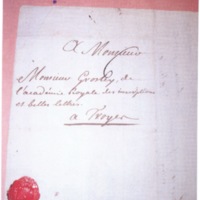 A Monsieur
Monsieur Grosley, de
l'académie Royale des inscriptions
et belles lettres
a Troyes